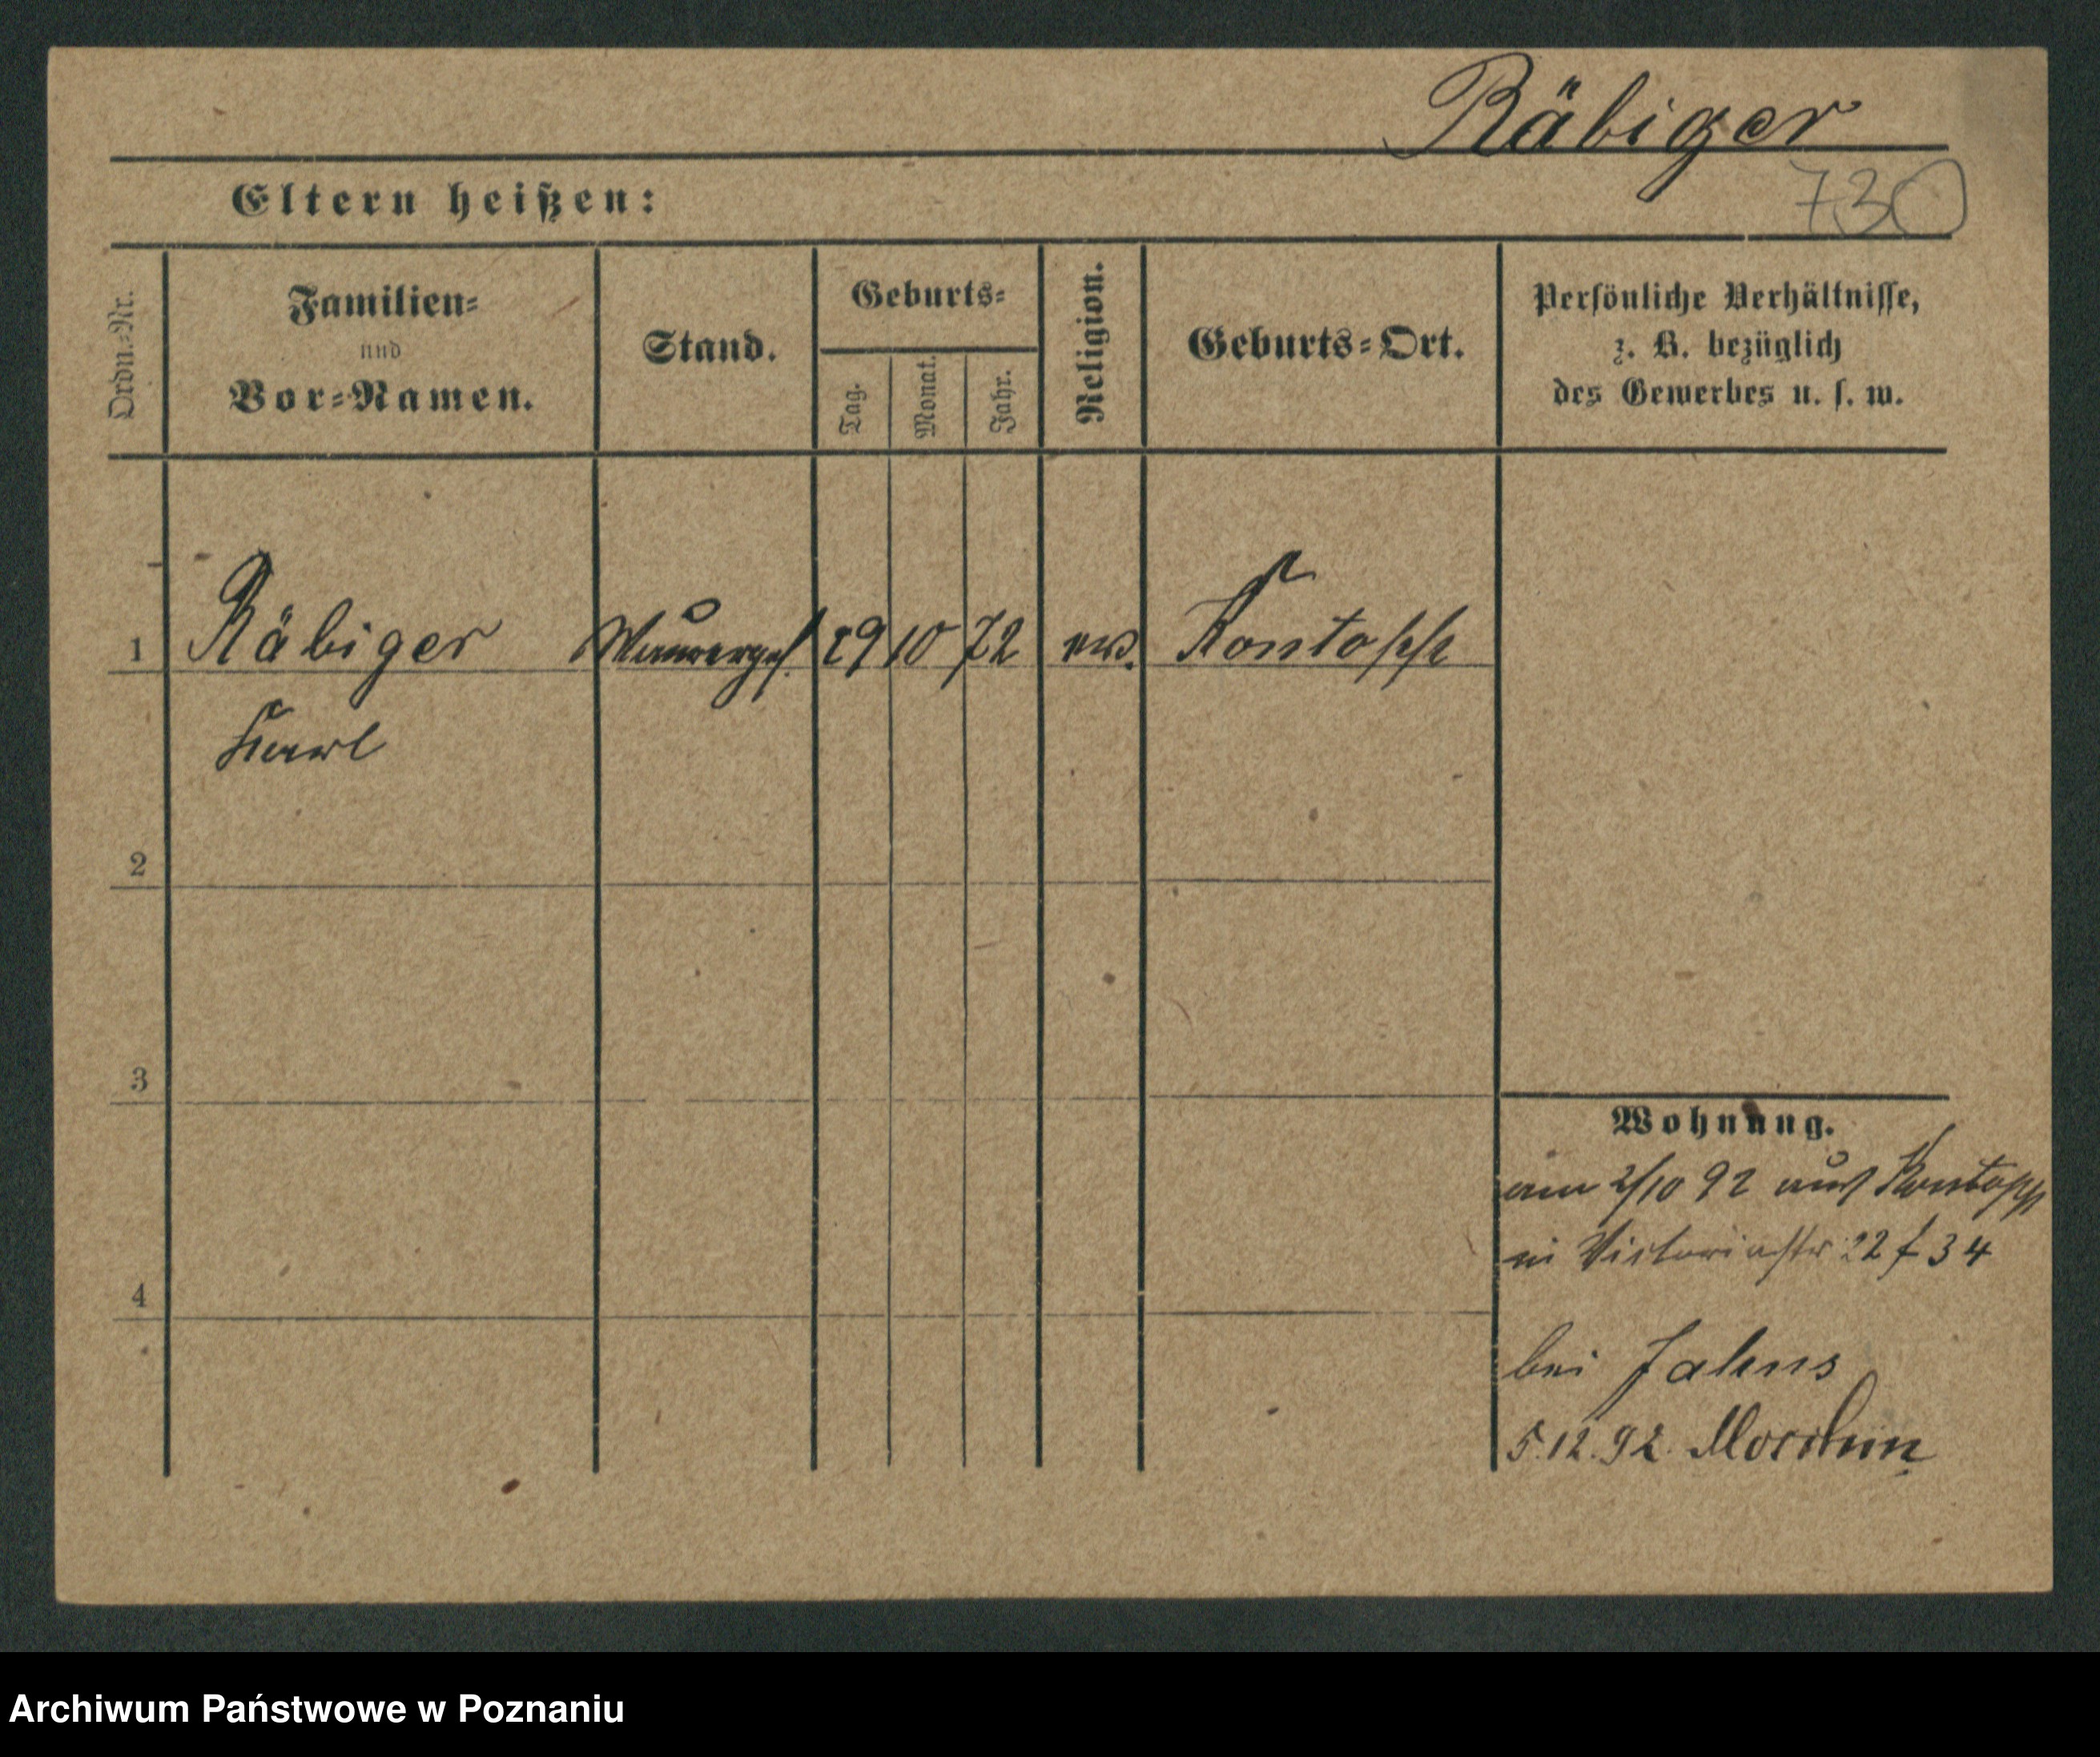 Räbiger
730
Eltern heißen:
Ordn.-Nr.
Familien-
und
Vor-Namen.
Stand.
Geburts-
Tag.
Monat.
Jahr.
Religion.
Geburts-Ort.
Persönliche Verhältnisse,
z. B. bezüglich
des Gewerbes u. s. w.
1 Räbiger Maurerges. 29 10 72 ev. Kontopp
Karl
2
3
4
Wohnung.
am 2/10 92 aus Kontopp
in Victoriastr 22 f 34
bei Jahns
5.12.92.
Archiwum Państwowe w Poznaniu